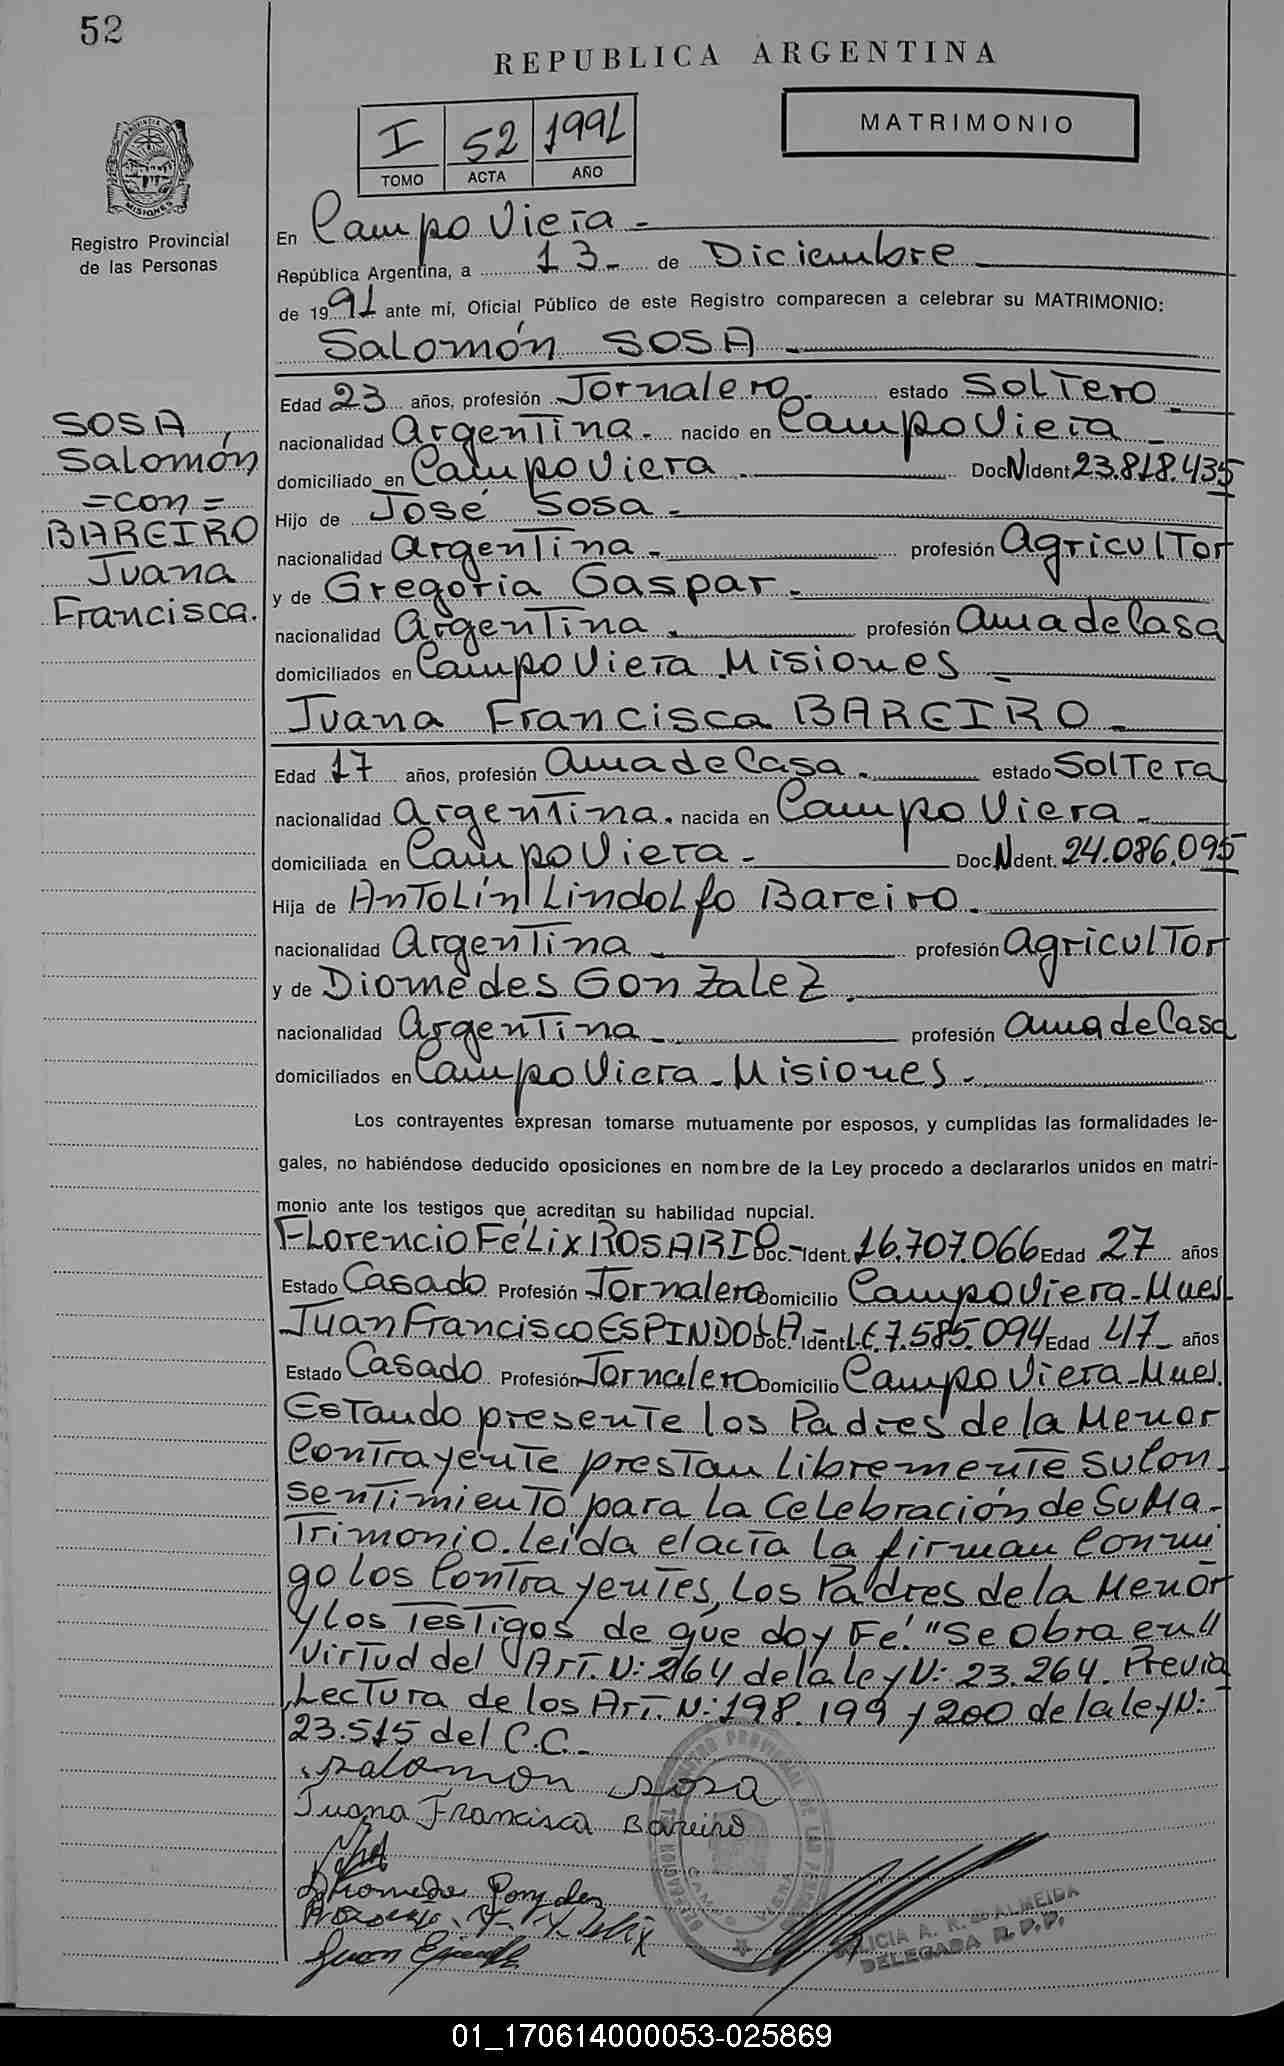 52
REPUBLICA ARGENTINA
I 52 1991
TOMO ACTA AÑO
MATRIMONIO
PROVINCIA DE
MISIONES
Registro Provincial
de las Personas
En Campo Viera
República Argentina, a 13 de Diciembre
de 1991 ante mí, Oficial Público de este Registro comparecen a celebrar su MATRIMONIO:
Salomón SOSA
Edad 23 años, profesión Jornalero estado Soltero
nacionalidad Argentina nacido en Campo Viera
domiciliado en Campo Viera Doc N Ident 23.818.435
Hijo de José Sosa
nacionalidad Argentina profesión Agricultor
y de Gregoria Gaspar
nacionalidad Argentina profesión ama de Casa
domiciliados en Campo Viera Misiones
SOSA,
Salomón
=con=
BAREIRO
Juana
Francisca.
Juana Francisca BAREIRO
Edad 17 años, profesión ama de Casa estado Soltera
nacionalidad Argentina nacida en Campo Viera
domiciliada en Campo Viera Doc N dent. 24.086.095
Hija de Antolín Lindolfo Bareiro
nacionalidad Argentina profesión agricultor
y de Diomedes Gonzalez
nacionalidad Argentina profesión ama de Casa
domiciliados en Campo Viera - Misiones
Los contrayentes expresan tomarse mutuamente por esposos, y cumplidas las formalidades le-
gales, no habiéndose deducido oposiciones en nombre de la Ley procedo a declararlos unidos en matri-
monio ante los testigos que acreditan su habilidad nupcial.
Florencio Félix ROSARIO Doc. Ident. 16.707.066 Edad 27 años
Estado Casado Profesión Jornalero Domicilio Campo Viera - Mnes
Juan Francisco ESPINDOLA Doc. Ident L.E 7.585.094 Edad 47 años
Estado Casado Profesión Jornalero Domicilio Campo Viera - Mnes.
Estando presente los Padres de la Menor
Contrayente prestan libremente su Con-
sentimiento para la Celebración de su Ma-
trimonio. leída el acta la firman Conmi
go los Contrayentes, los Padres de la Menor
y los Testigos de que doy Fé. "Se obra en"
Virtud del Art. N: 264 de la ley N: 23.264. Previa
Lectura de los Art. N: 198. 199 y 200 de la ley N:
23.515 del C.C.
Salomon sosa
Juana Francisca Bareiro
Juan
ALICIA A. K. de ALMEIDA
DELEGADA R.P.P.
01_170614000053-025869